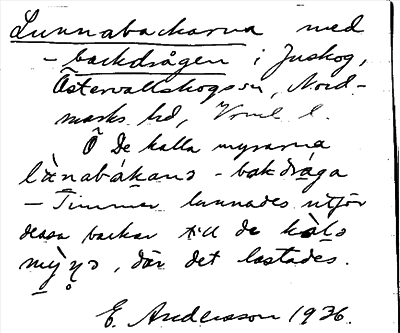 Lunnabackarna med
- backdrågen i Juskog,
Östervallskogs sn, Nord-
marks hd, Vrml l.
De kalla myrarna
lὰnabákanɔ - bakdrága
- Timmer lunnades utför
dessa backar till de
mýrɔ, där det lastades.
E. Andersson 1936.